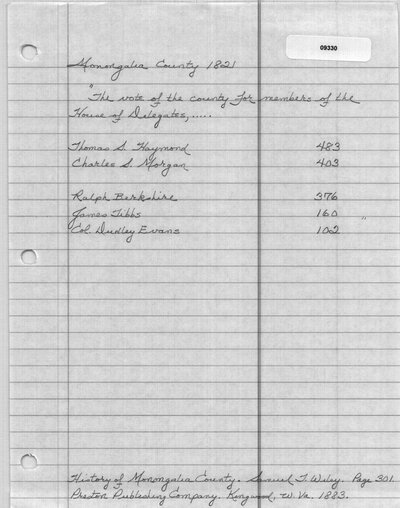 09330
Monongalia County 1821
"The vote of the county for members of the
House of Delegates,.....
Thomas S. Haymond 483
Charles S. Morgan 403
Ralph Berkshire 376
James Tibbs 160 "
Col. Dudley Evans 102
History of Monongalia County. Samuel T. Wiley. Page 301.
Preston Publishing Company. Kingwood, W. Va. 1883.